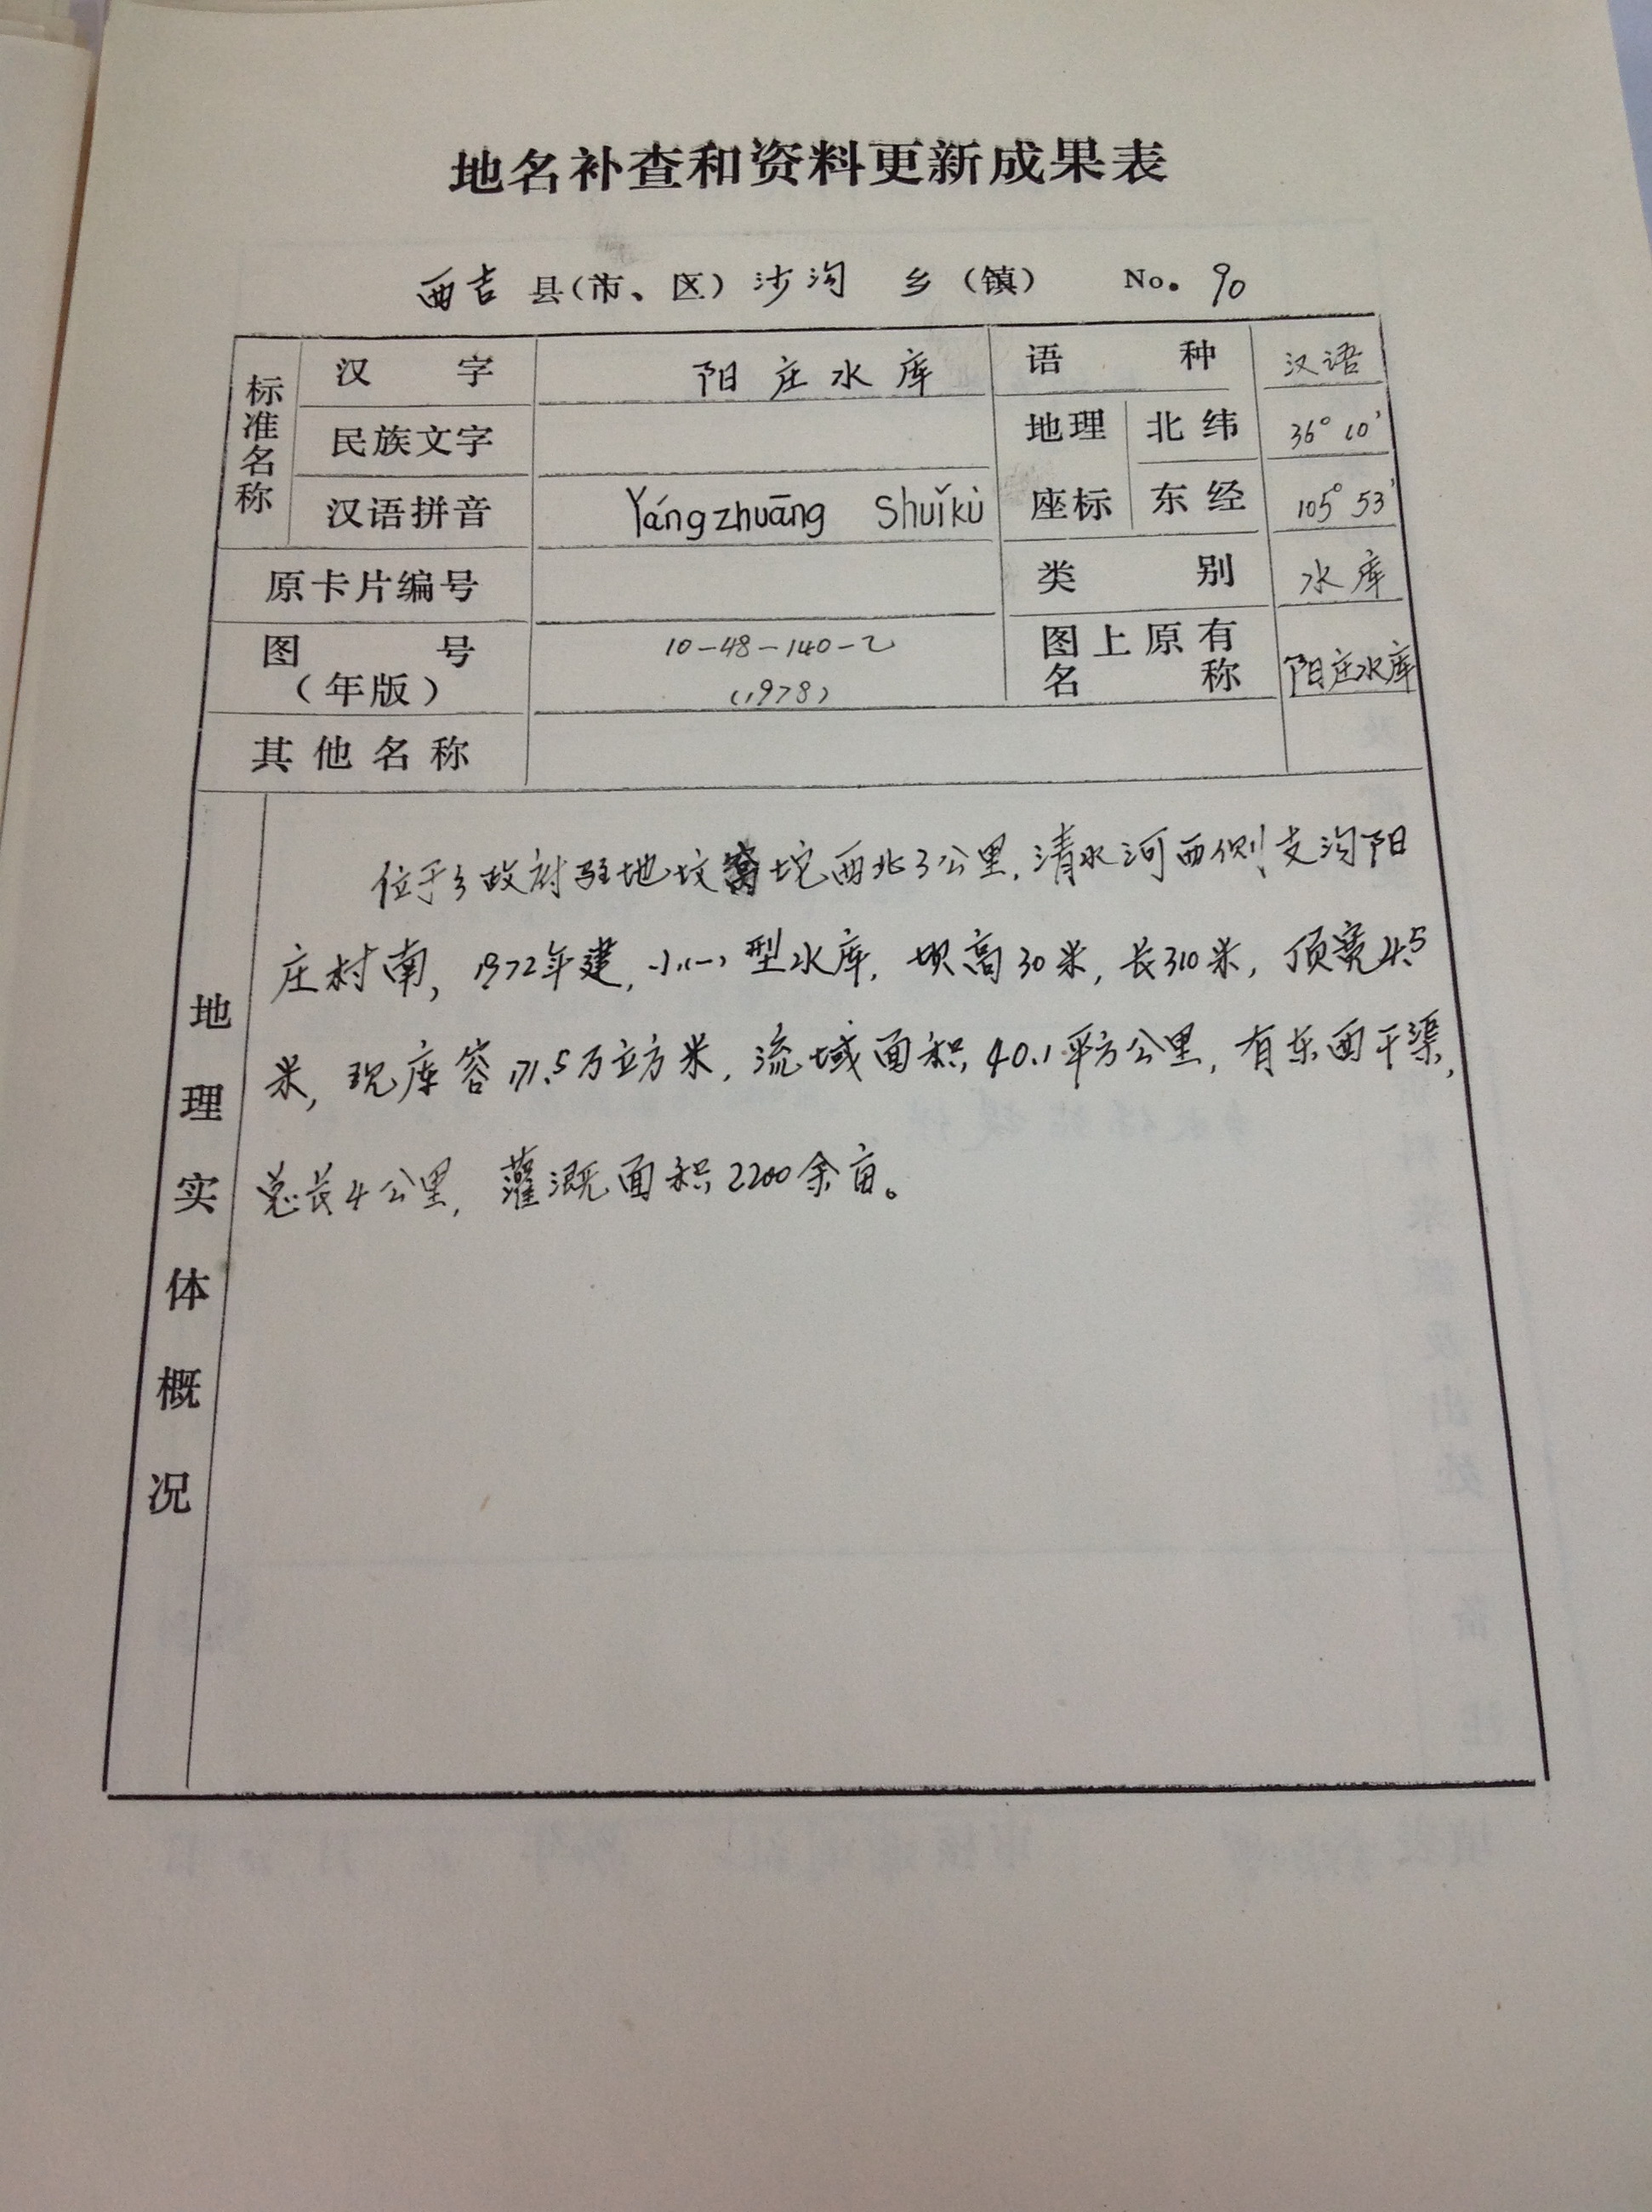 地名补查和资料更新成果表
西吉 县(市、区) 沙沟 乡(镇) No. 90
标准名称
汉字 阳庄水库 语种 汉语
民族文字 地理 北纬 36°10'
汉语拼音 Yángzhuāng Shuǐkù 座标 东经 105°53'
原卡片编号 类别 水库
图号 10-48-140-2 图上原有
(年版) (1978) 名称 阳庄水库
其他名称
地理实体概况
位于乡政府驻地坟窝坨西北3公里,清水河西侧支沟阳
庄村南,1972年建,小(一)型水库,坝高30米,长310米,顶宽4.5
米,现库容171.5万立方米,流域面积40.1平方公里,有东西干渠,
总长4公里,灌溉面积2200余亩。